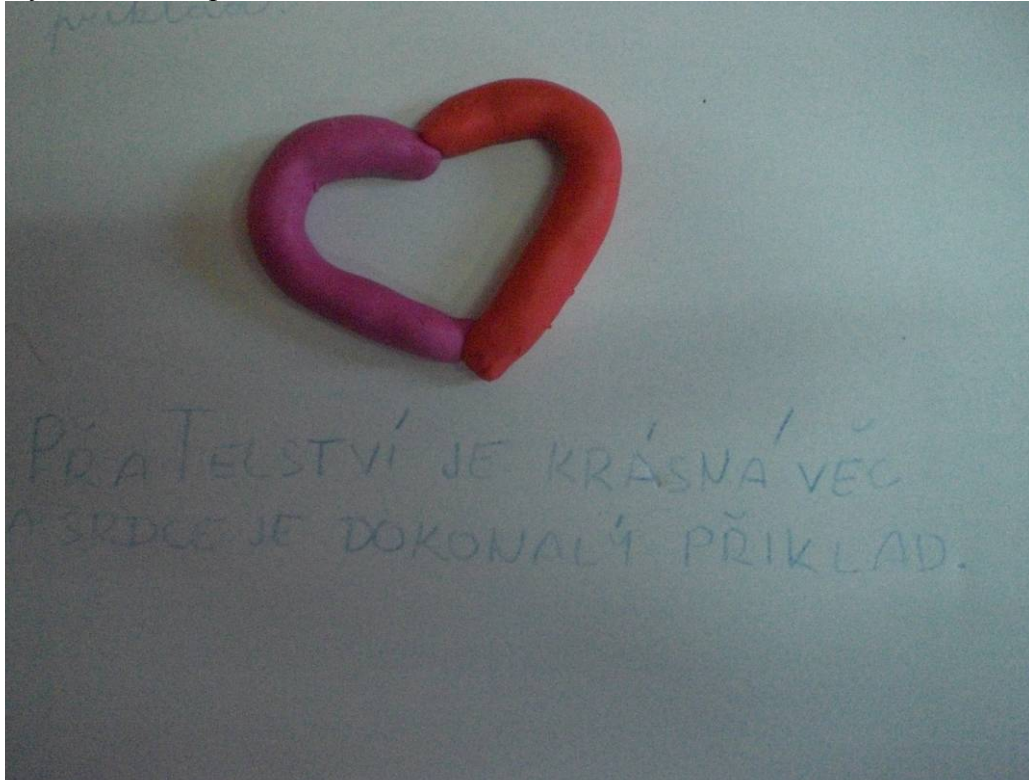 příklad.
PŘATELSTVÍ JE KRÁSNÁ VĚC
A SRDCE JE DOKONALÝ PŘIKLAD.